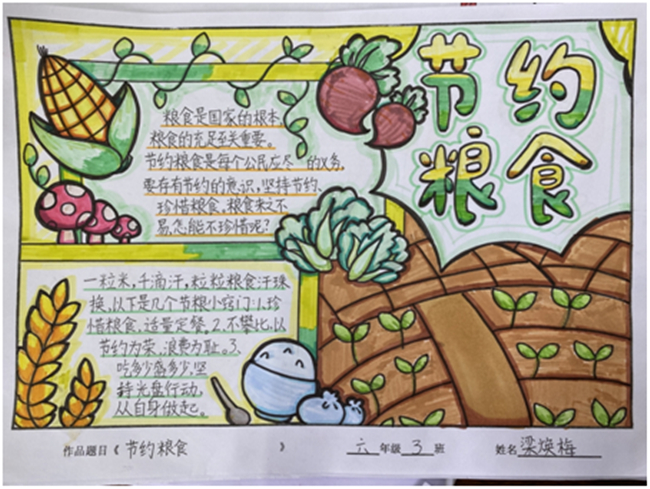 节约
粮食
粮食是国家的根本,
粮食的充足至关重要。
节约粮食是每个公民应尽 的义务,
要存有节约的意识,坚持节约、
珍惜粮食,粮食来之不
易,怎能不珍惜呢?
一粒米,千滴汗,粒粒粮食汗珠
换,以下是几个节粮小窍门:1.珍
惜粮食,适量定餐,2.不攀比,以
节约为荣,浪费为耻。3、
吃多少盛多少,坚
持光盘行动,
从自身做起。
作品题目《 节约粮食 》 六 年级 3 班 姓名 梁焕梅